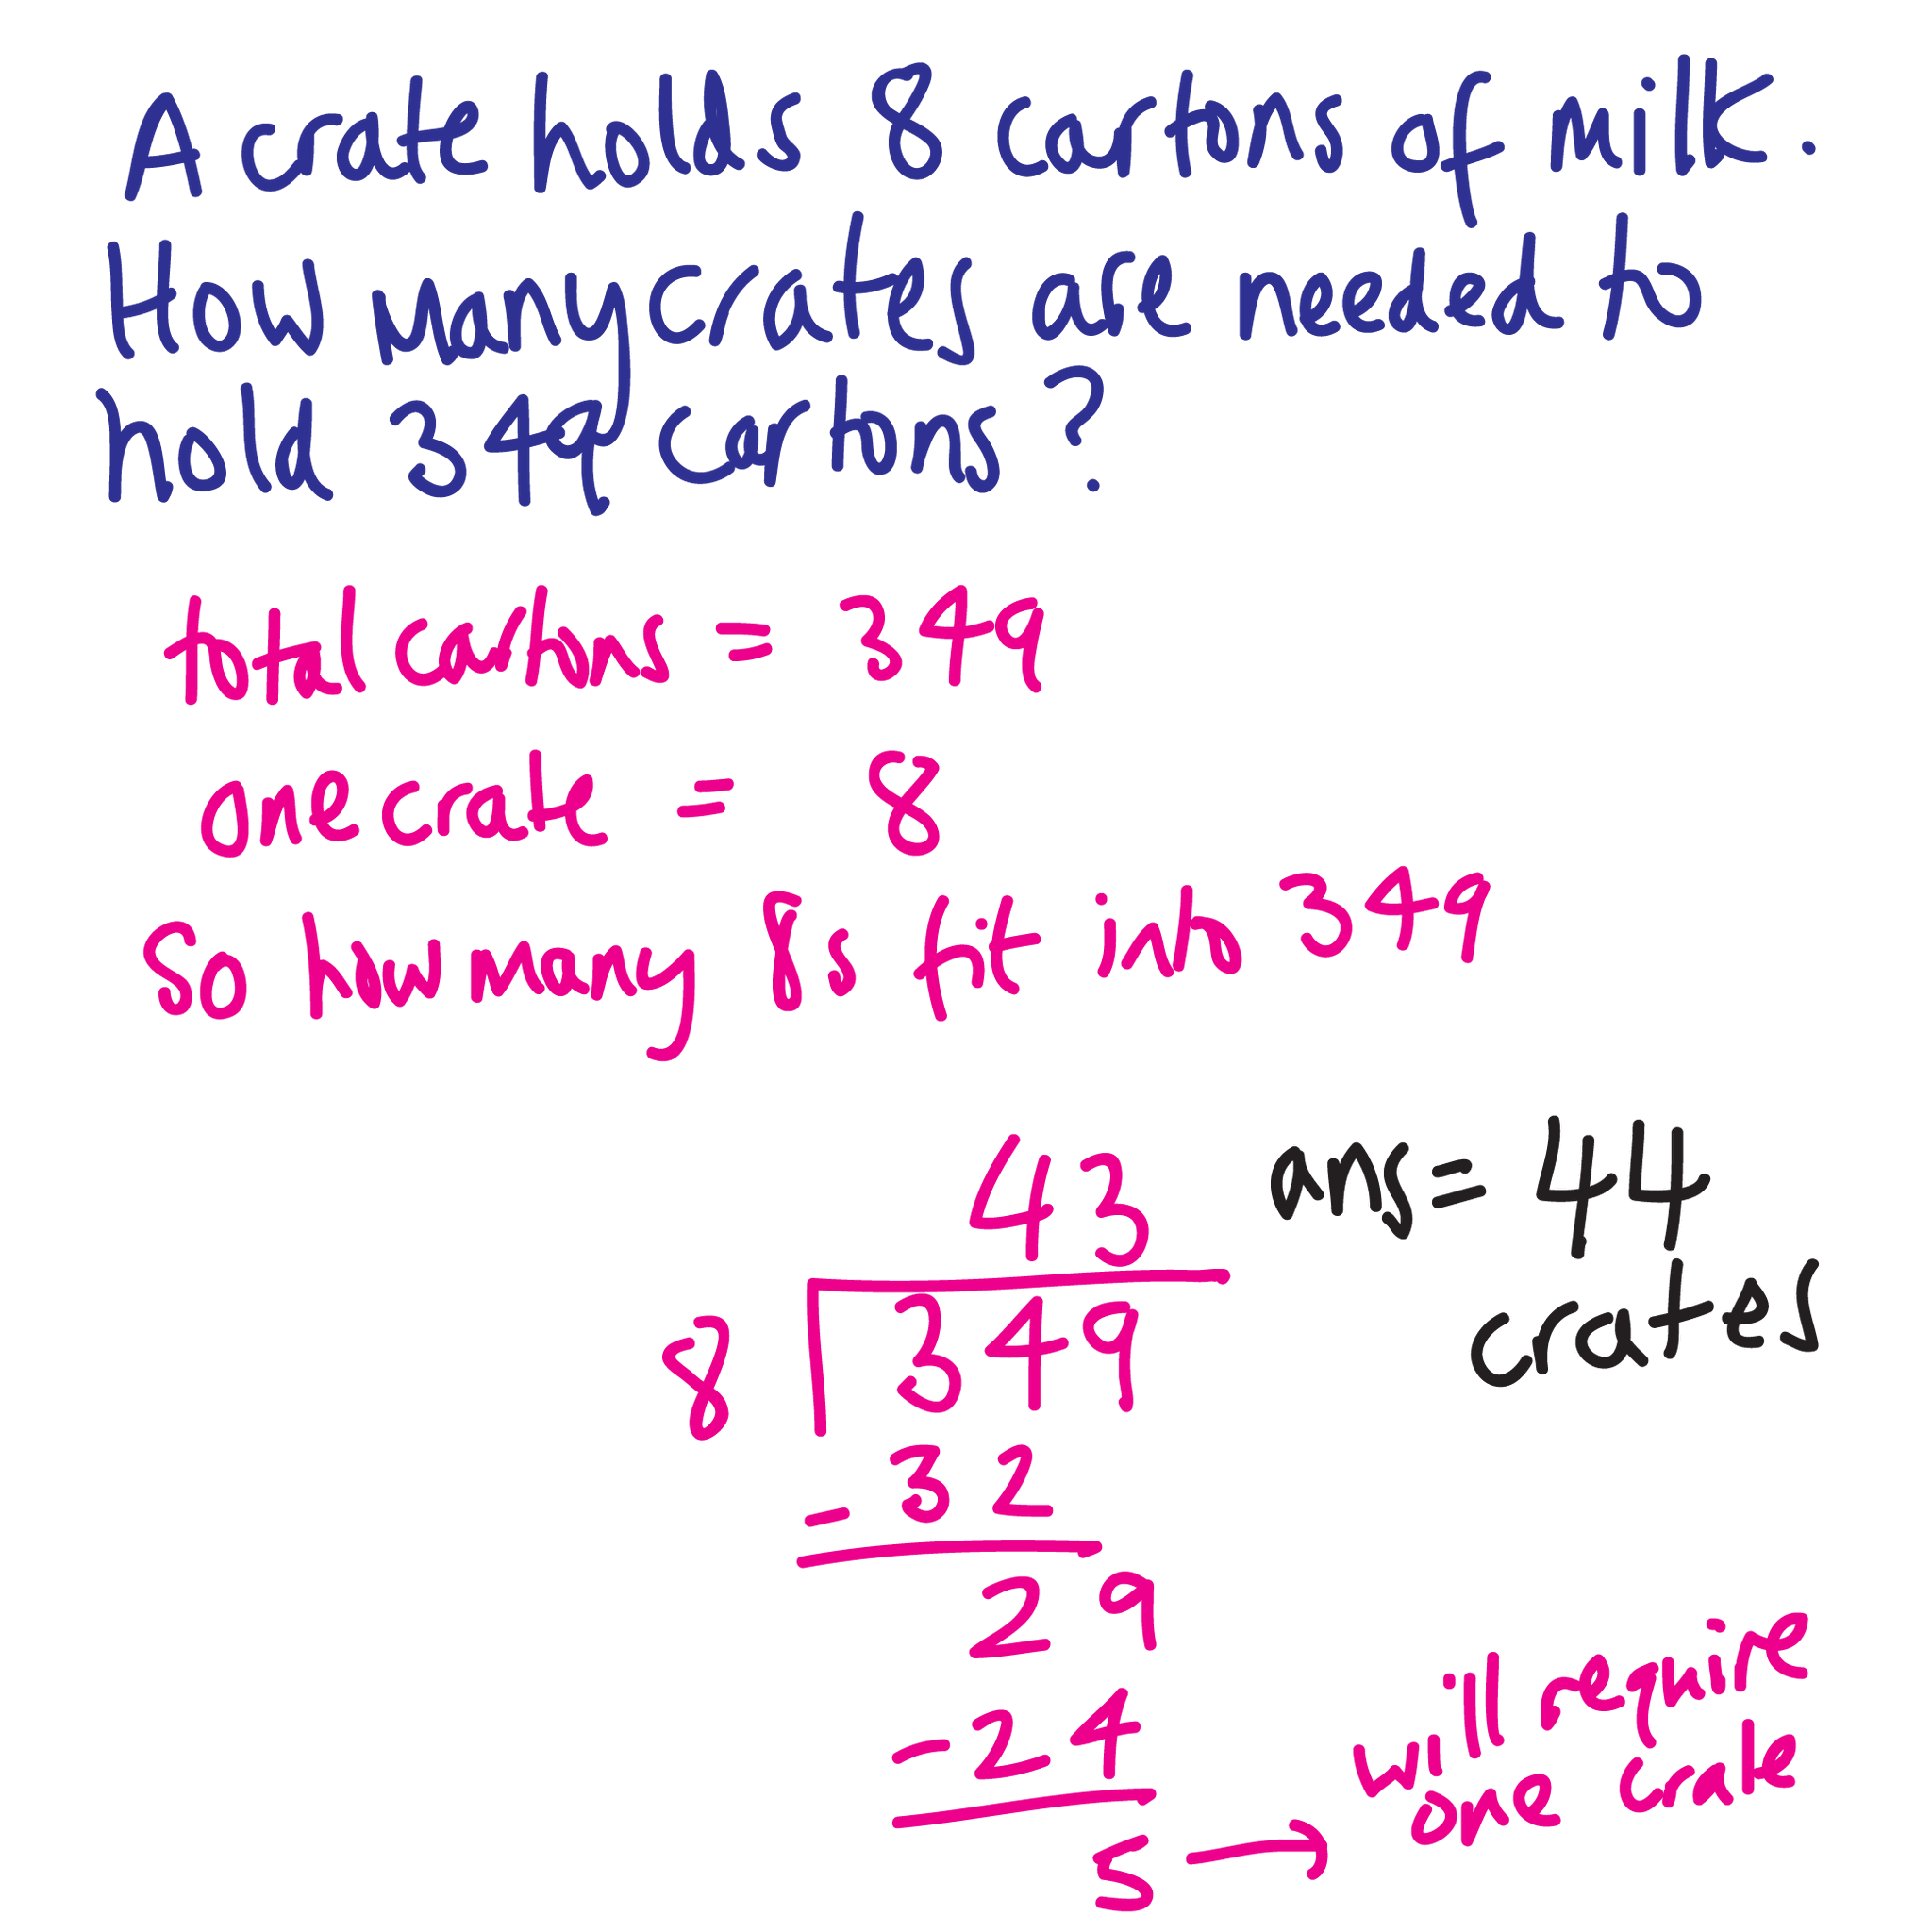 A crate holds 8 cartons of milk.
How many crates are needed to
hold 349 cartons?
total cartons = 349
one crate = 8
So how many 8s fit into 349
43
8 349
- 32
29
- 24
5 → will require
one crate
ans = 44
crates